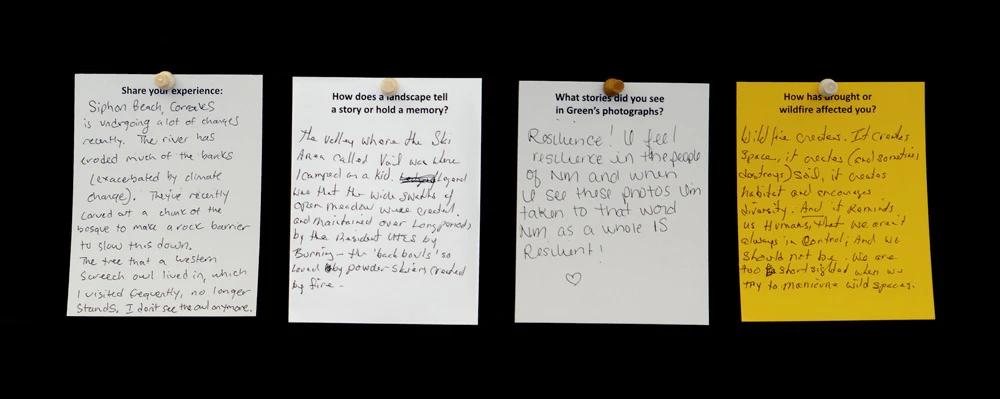 Share your experience:
Siphon Beach, Corrales
is undergoing a lot of changes
recently. The river has
eroded much of the banks
(exacerbated by climate
change). They've recently
carved out a chunk of the
bosque to make a rock barrier
to slow this down.
The tree that a western
Screech owl lived in, which
I visited frequently, no longer
Stands. I don't see the owl anymore.
How does a landscape tell
a story or hold a memory?
the valley where the Ski
Area called Vail was where
I camped as a kid. Legend
was that the wide swaths of
open meadow were created
and maintained over Long periods
by the Resident UTES by
Burning - the 'back bowls' so
loved by powder skiers created
by fire -
What stories did you see
in Green's photographs?
Resilience! I feel
resilience in the people
of NM and when
I see these photos I'm
taken to that word
NM as a whole IS
Resilient!
♡
How has drought or
wildfire affected you?
Wildfire creates. It creates
Space, it creates (and sometimes
destroys) soil, it creates
habitat and encourages
diversity. And it reminds
us Humans, that we aren't
always in control; And we
should not be. We are
too short sighted when we
try to manicure wild spaces.